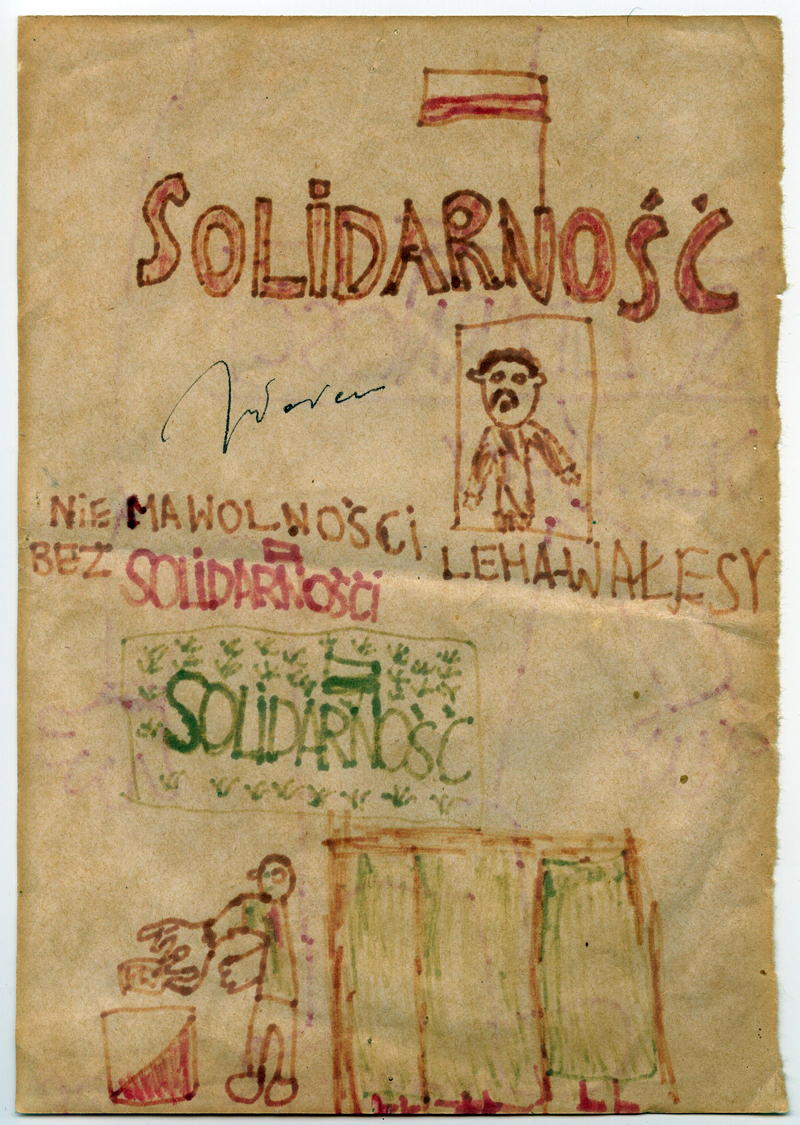 SOLiDARNOŚĆ
NiE MA WOLNOŚCi
BEZ SOLiDARNOŚĆi
LEHA-WAŁĘSY
SOLiDARNOŚĆ